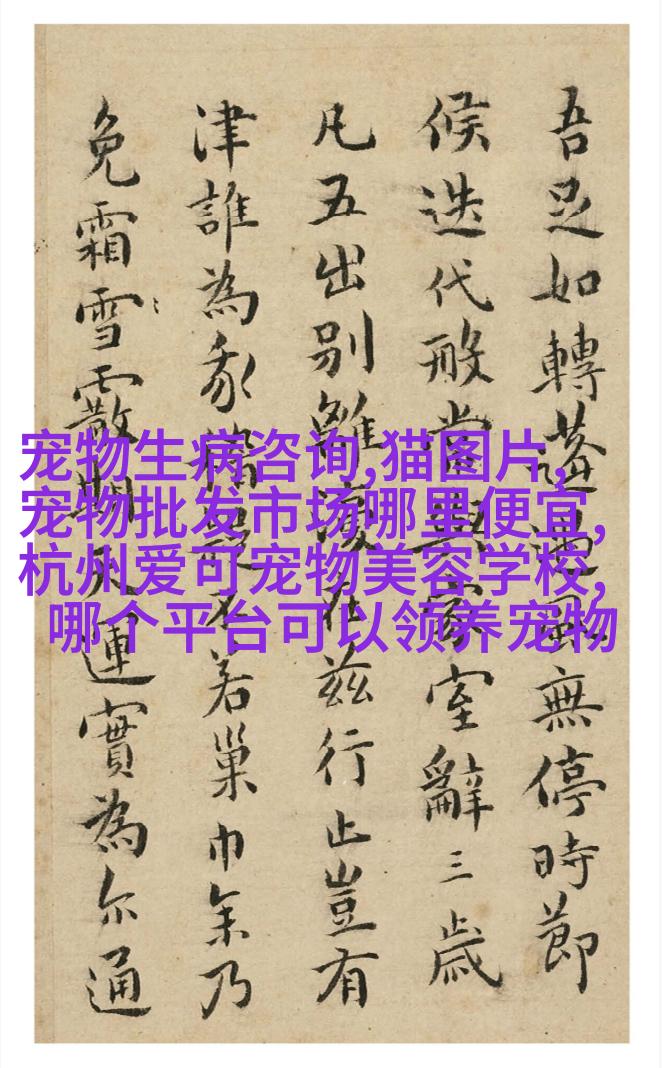 吾足如轉蓬風無停時節
候迭代般當家室辭三歲
凡五出別離復在茲行止豈有
津誰為不若巢乃
免霜雪霰天運實為尔通
宠物生病咨询,猫图片,
宠物批发市场哪里便宜,
杭州爱可宠物美容学校,
哪个平台可以领养宠物